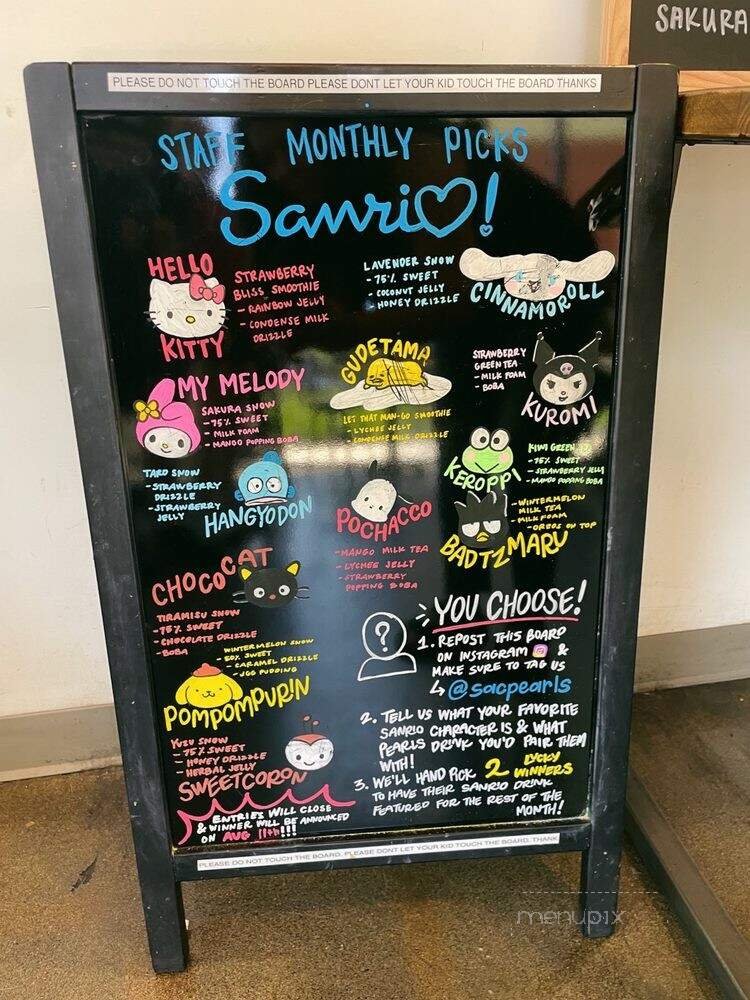 SAKURA
PLEASE DO NOT TOUCH THE BOARD PLEASE DONT LET YOUR KID TOUCH THE BOARD THANKS
STAFF MONTHLY PICKS
Sanrio!
HELLO
KITTY
STRAWBERRY
BLISS SMOOTHIE
- RAINBOW JELLY
- CONDENSE MILK
DRIZZLE
LAVENDER SNOW
- 75% SWEET
- COCONUT JELLY
- HONEY DRIZZLE
CINNAMOROLL
MY MELODY
SAKURA SNOW
- 75% SWEET
- MILK FOAM
- MANGO POPPING BOBA
GUDETAMA
LET THAT MAN-GO SMOOTHIE
- LYCHEE JELLY
- CONDENSE MILK DRIZZLE
STRAWBERRY
GREEN TEA
- MILK FOAM
- BOBA
KUROMI
TARO SNOW
- STRAWBERRY
DRIZZLE
- STRAWBERRY
JELLY
HANGYODON
POCHACCO
- MANGO MILK TEA
- LYCHEE JELLY
- STRAWBERRY
POPPING BOBA
KEROPPI
KIWI GREEN
- 75% SWEET
- STRAWBERRY JELLY
- MANGO POPPING BOBA
BADTZMARU
- WINTERMELON
MILK TEA
- MILK FOAM
- OREOS ON TOP
CHOCOCAT
TIRAMISU SNOW
- 75% SWEET
- CHOCOLATE DRIZZLE
- BOBA
WINTERMELON SNOW
- 50% SWEET
- CARAMEL DRIZZLE
- EGG PUDDING
POMPOMPURIN
YUZU SNOW
- 75% SWEET
- HONEY DRIZZLE
- HERBAL JELLY
SWEETCORON
ENTRIES WILL CLOSE
& WINNER WILL BE ANNOUNCED
ON AUG 11th!!!
?
YOU CHOOSE!
1. REPOST THIS BOARD
ON INSTAGRAM &
MAKE SURE TO TAG US
↳ @sacpearls
2. TELL US WHAT YOUR FAVORITE
SANRIO CHARACTER IS & WHAT
PEARLS DRINK YOU'D PAIR THEM
WITH!
3. WE'LL HAND PICK 2 LUCKY WINNERS
TO HAVE THEIR SANRIO DRINK
FEATURED FOR THE REST OF THE
MONTH!
PLEASE DO NOT TOUCH THE BOARD. PLEASE DONT LET YOUR KID TOUCH THE BOARD. THANK
menupix